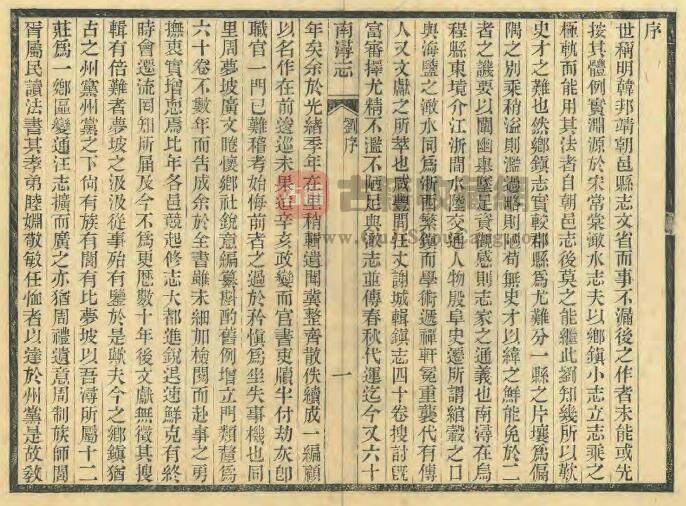 序
世稱明韓邦靖朝邑縣志文省而事不漏後之作者未能或先
按其體例實淵源於宋常棠澉水志夫以鄉鎮小志立志乘之
極軌而能用其法者自朝邑志後莫之能繼此劉知幾所以歎
史才之難也然鄉鎮志實較郡縣爲尤難分一縣之片壤爲偏
隅之别乘稍溢則濫過略則陋苟無史才以緯之鮮能免於二
者之譏要以闡幽舉墜足資觀感則志家之通義也南潯在烏
程縣東境介江浙間水陸交通人物殷阜史遷所謂綰轂之口
與海鹽之澉水同爲浙西繁鎮而學術遞禪軒冕重襲代有傳
人又文獻之所萃也咸豐間汪丈謝城輯鎮志四十卷搜討旣
富審擇尤精不濫不陋足與澉志並傳春秋代運迄今又六十
南潯志
劉序
一
年矣余於光緒季年在里稍輯遺聞冀整齊散佚續成一編顧
以名作在前逡巡未果迨辛亥政變而官書吏牘半付劫灰卽
職官一門已難稽考始悔前者之過於矜慎爲坐失事機也同
里周夢坡廣文睠懷鄉社銳意編纂斟酌舊例增立門類釐爲
六十卷不數年而告成余於全書雖未細加檢閱而赴事之勇
撫衷實增恧焉比年各邑競起修志大都進銳退速鮮克有終
時會遷流罔知所屆及今不爲更歷數十年後文獻無徵其搜
輯有倍難者夢坡之汲汲從事殆有鑒於是歟夫今之鄉鎮猶
古之州黨州黨之下尙有族有閭有比夢坡以吾潯所屬十二
莊爲一鄉區變通汪志擴而廣之亦猶周禮遺意周制族師閭
胥屬民讀法書其孝弟睦婣敬敏任恤者以達於州黨是故敎
古籍收藏网
www.GujiShouCang.com